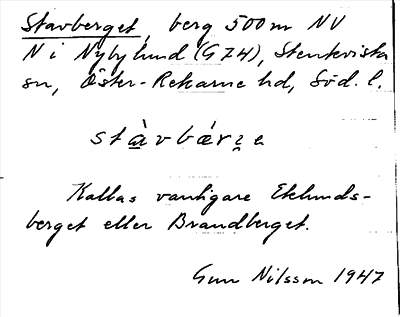 Stavberget, berg 500 m NV
N i Nybylund (G 74), Stenkvista
sn, Öster-Rekarne hd, Söd. l.
stàvbárʒe
Kallas vanligare Eklunds-
berget eller Brandberget.
Gun Nilsson 1947